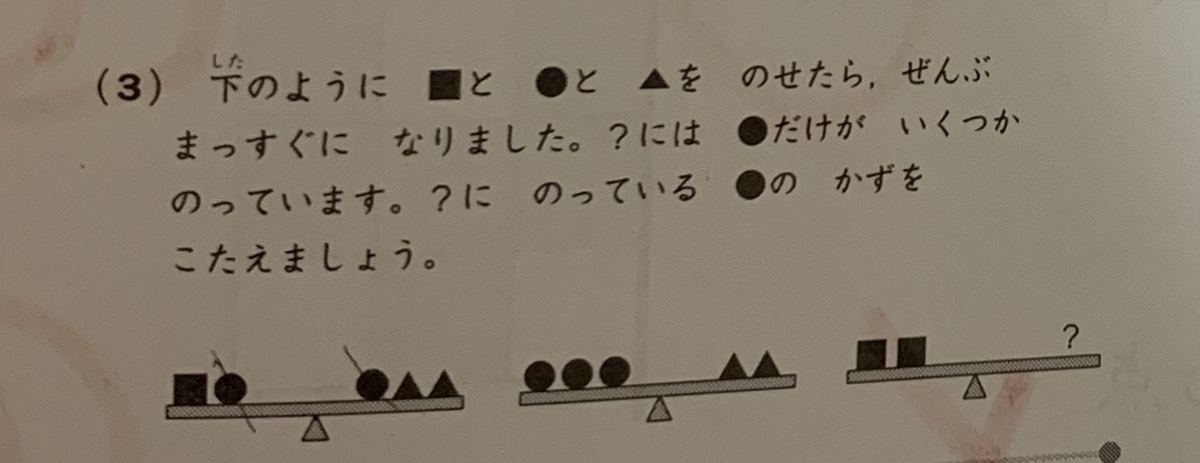 (3) 下のように ■と ●と ▲を のせたら, ぜんぶ
まっすぐに なりました。?には ●だけが いくつか
のっています。?に のっている ●の かずを
こたえましょう。
?